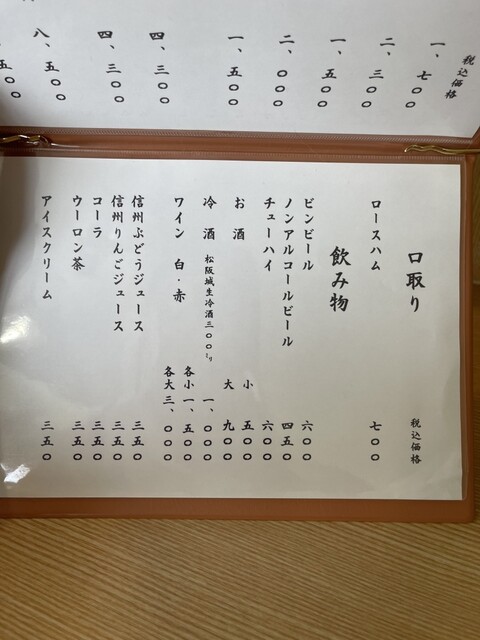 税込価格
一、七〇〇
二、三〇〇
一、五〇〇
二、〇〇〇
一、五〇〇
四、三〇〇
四、三〇〇
八、五〇〇
五〇〇
口取り 税込価格
ロースハム 七〇〇
飲み物
ビンビール 六〇〇
ノンアルコールビール 四五〇
チューハイ 六〇〇
お酒 小 五〇〇
大 九〇〇
冷酒 松阪城生冷酒三〇〇㍉ 一、〇〇〇
ワイン 白・赤 各小 一、五〇〇
各大 三、〇〇〇
信州ぶどうジュース 三五〇
信州りんごジュース 三五〇
コーラ 三五〇
ウーロン茶 三五〇
アイスクリーム 三五〇